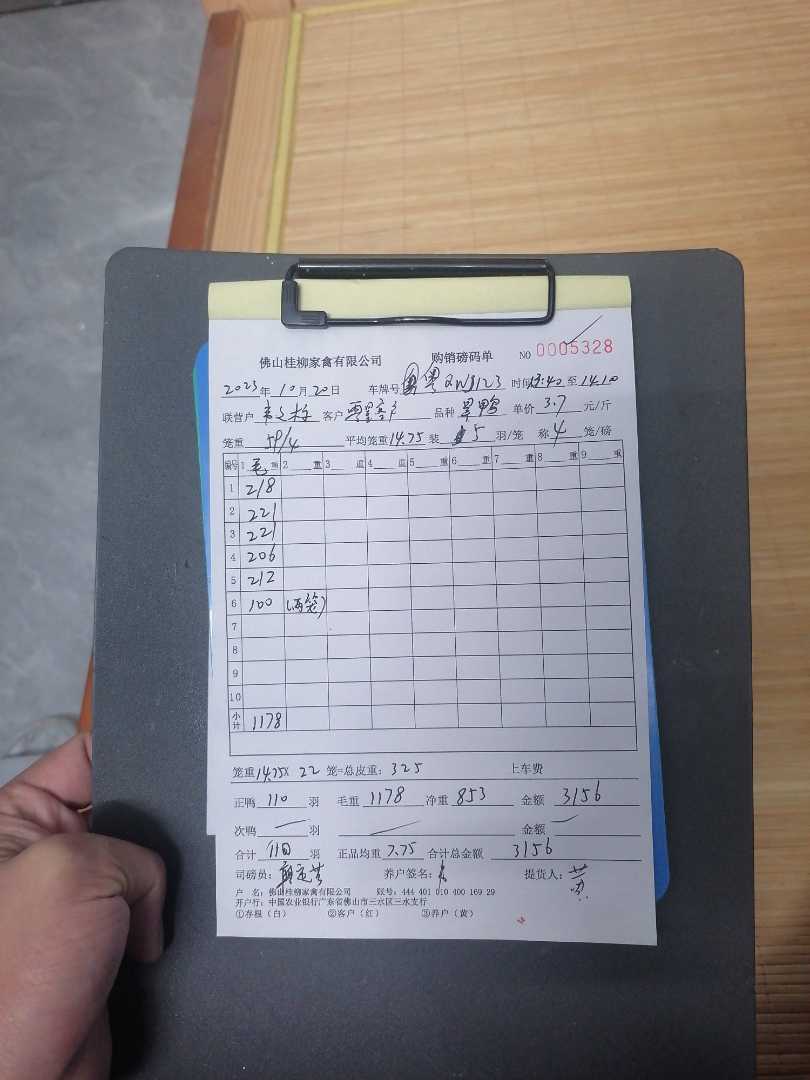 佛山桂柳家禽有限公司 购销磅码单 NO 0005328
2023年10月20日 车牌号 粤 2W8123 时间13:40至14.10
联营户 客户 品种 单价 3.7 元/斤
笼重 59/4 平均笼重14.75 装 5 羽/笼 称 4 笼/磅
编号 1 毛重 2 重 3 重 4 重 5 重 6 重 7 重 8 重 9 重
1 218
2 221
3 221
4 206
5 212
6 100 (两笼)
7
8
9
10
小计 1178
笼重14.75× 22 笼=总皮重: 325 上车费
正鸭 110 羽 毛重 1178 净重 853 金额 3156
次鸭 羽 金额
合计 110 羽 正品均重 7.75 合计总金额 3156
司磅员: 养户签名: 提货人:
户 名: 佛山桂柳家禽有限公司 账号: 444 401 010 400 169 29
开户行: 中国农业银行广东省佛山市三水区三水支行
①存根(白) ②客户(红) ③养户(黄)